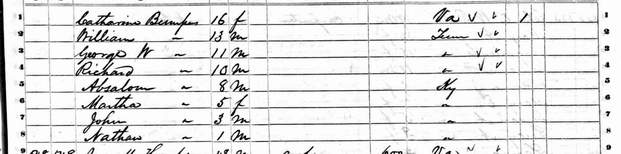 1 Catharine Bumpus 16 f Va ✓ " 1 1
2 William ~ 13 m Tenn ✓ " 2
3 George W ~ 11 m " ✓ " 3
4 Richard ~ 10 m " ✓ " 4
5 Absalom ~ 8 m Ky 5
6 Martha ~ 5 f " 6
7 John ~ 3 m " 7
8 Nathan ~ 1 m " 8
9 Va 9